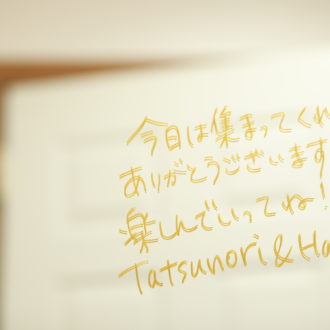 今日は集まってくれ
ありがとうございます
楽しんでいってね!
Tatsunori & Ha